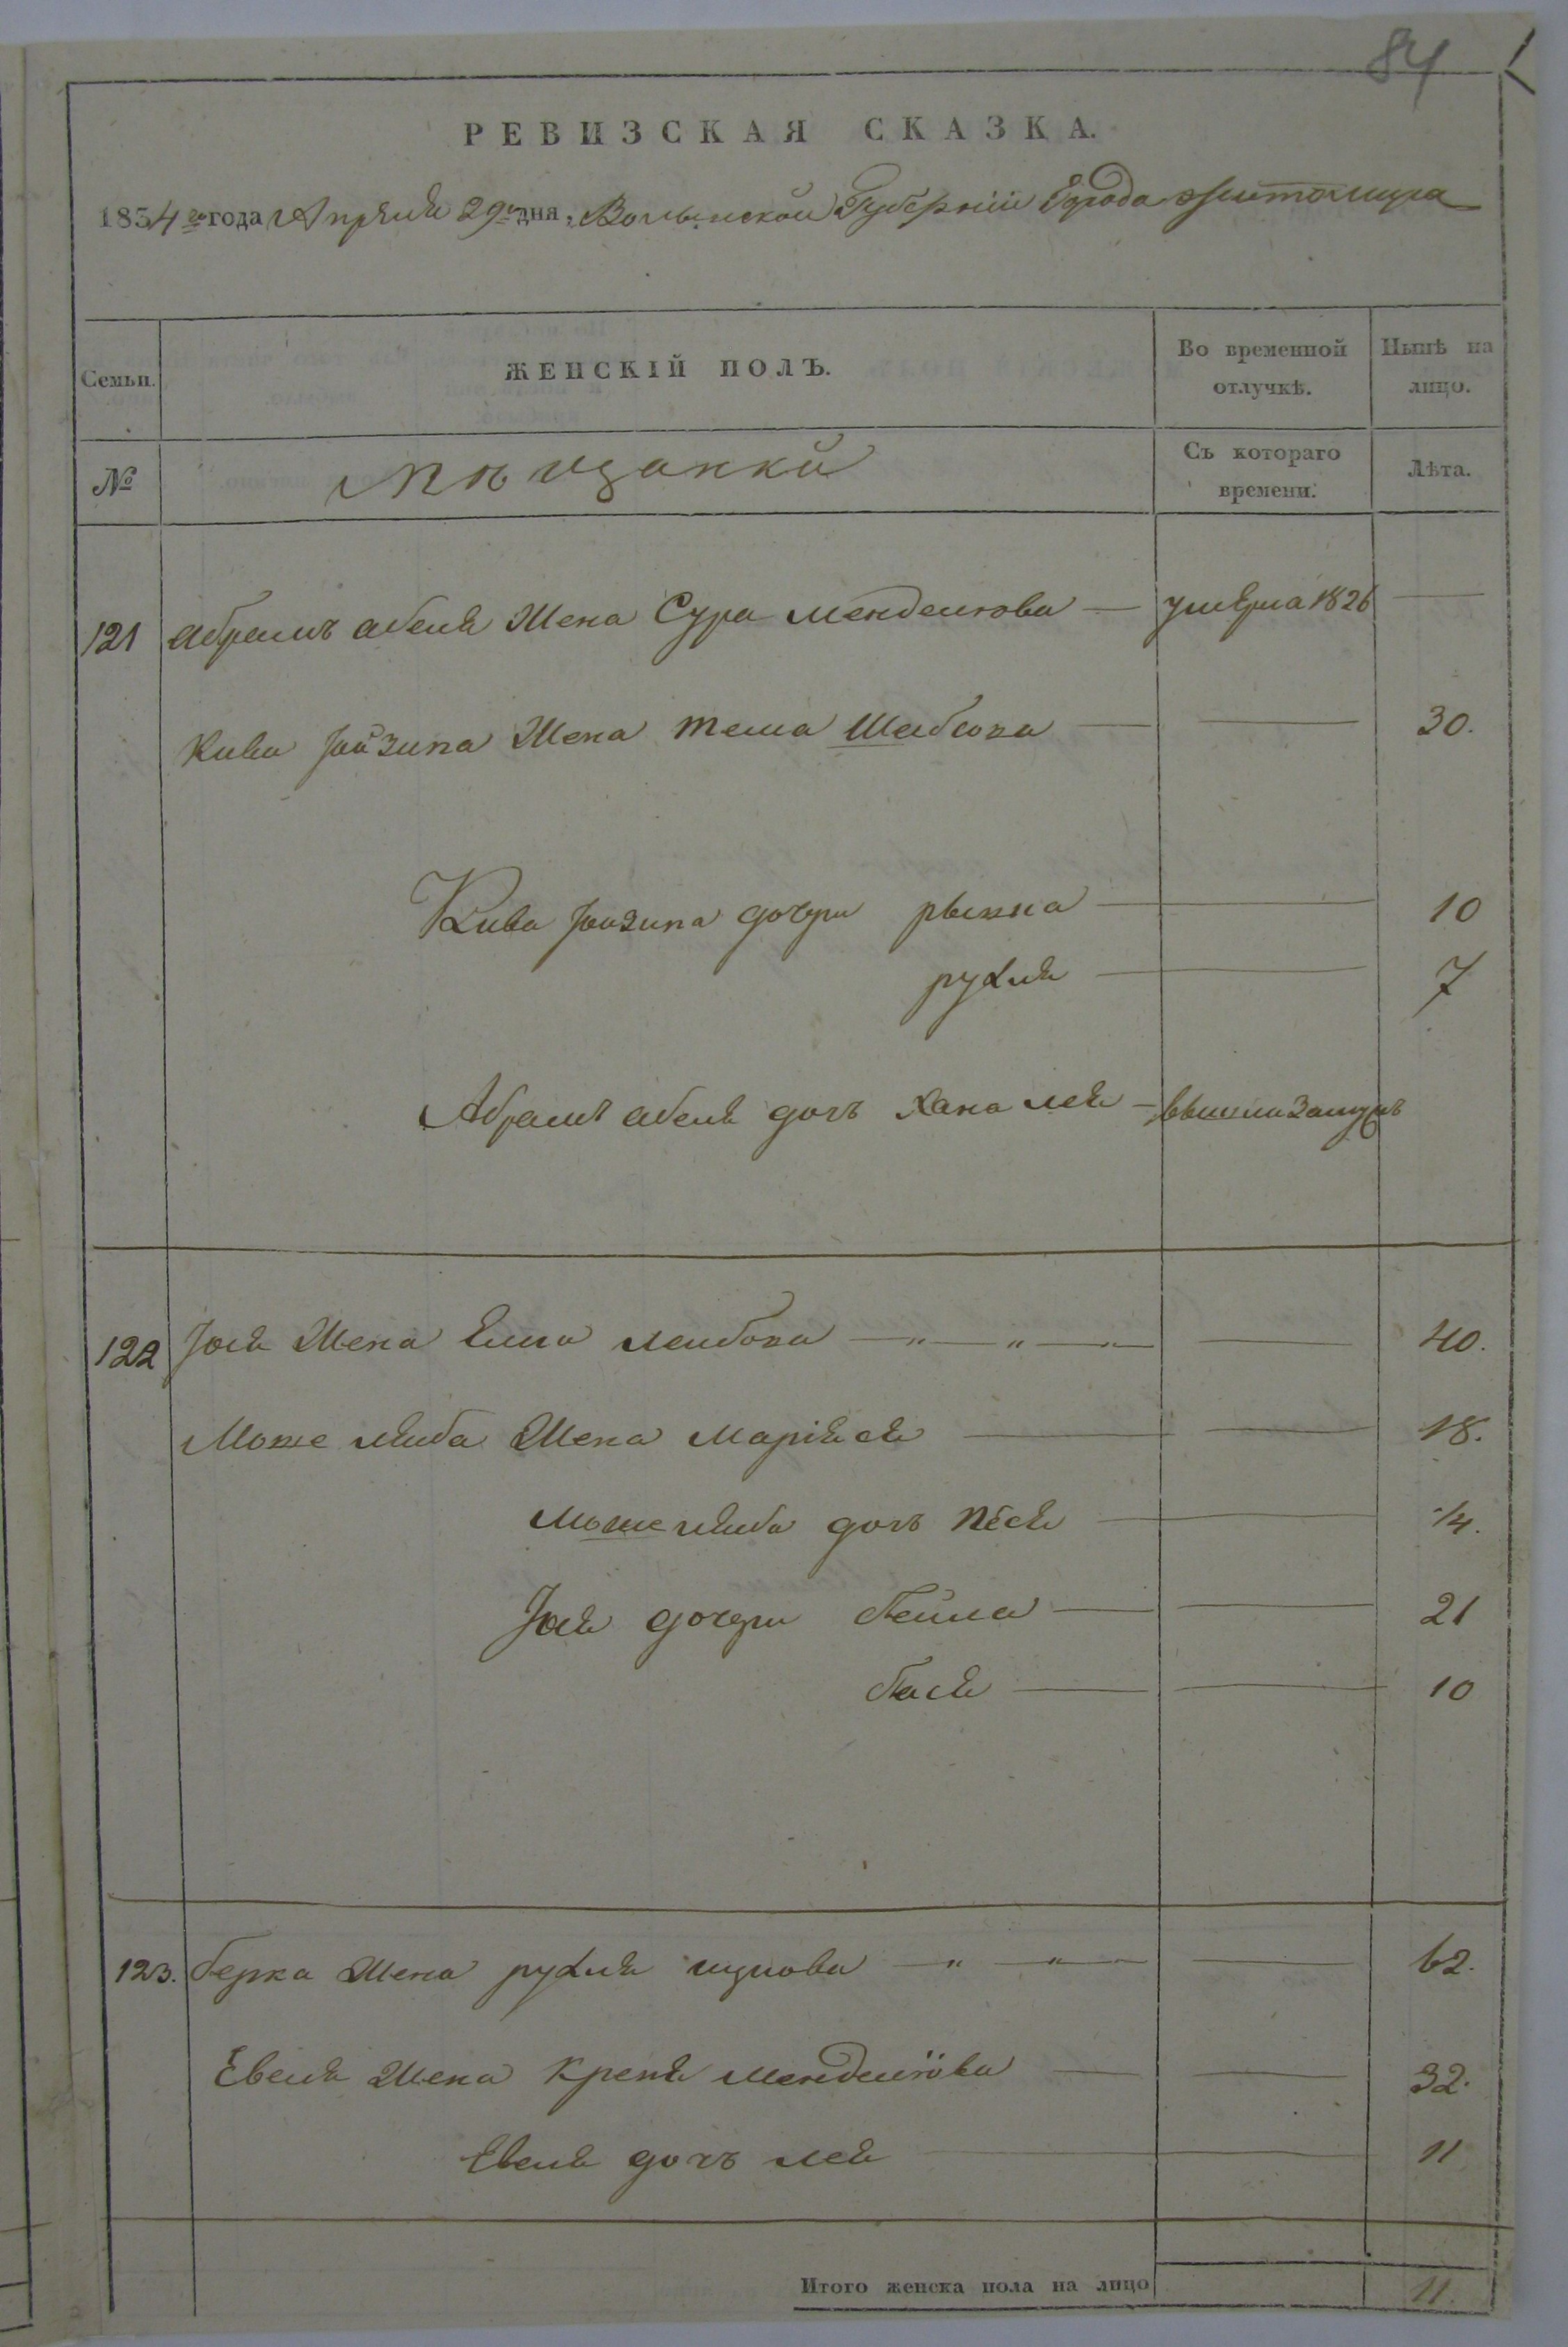 84
РЕВИЗСКАЯ СКАЗКА.
1834го года Апреля 29го дня, Волынской Губерніи Города Житомира
Семьи. ЖЕНСКІЙ ПОЛЪ. Во временной отлучкѣ. Нынѣ на лицо.
№ Мѣщанки Съ котораго времени. Лѣта.
121 Абрамъ абеля Жена Сура менделюва — умерла 1826 —
Кива Жена теша Шебсова — — 30.
Кива дочери рыкла — 10
рухля — 7
Абрамъ абеля дочь Хана лея — вышла замужъ
122 Жена Елла леибова — — 40.
Моше леиба Жена Маріяся — — 18.
Моше леиба дочь Песя — 1/4.
дочери беила — — 21
бася — — 10
123. берка Жена рухля — — 62.
Евеля Жена Креня менделюва — — 32.
Евеля дочь лея — 11
Итого женска пола на лицо 11.